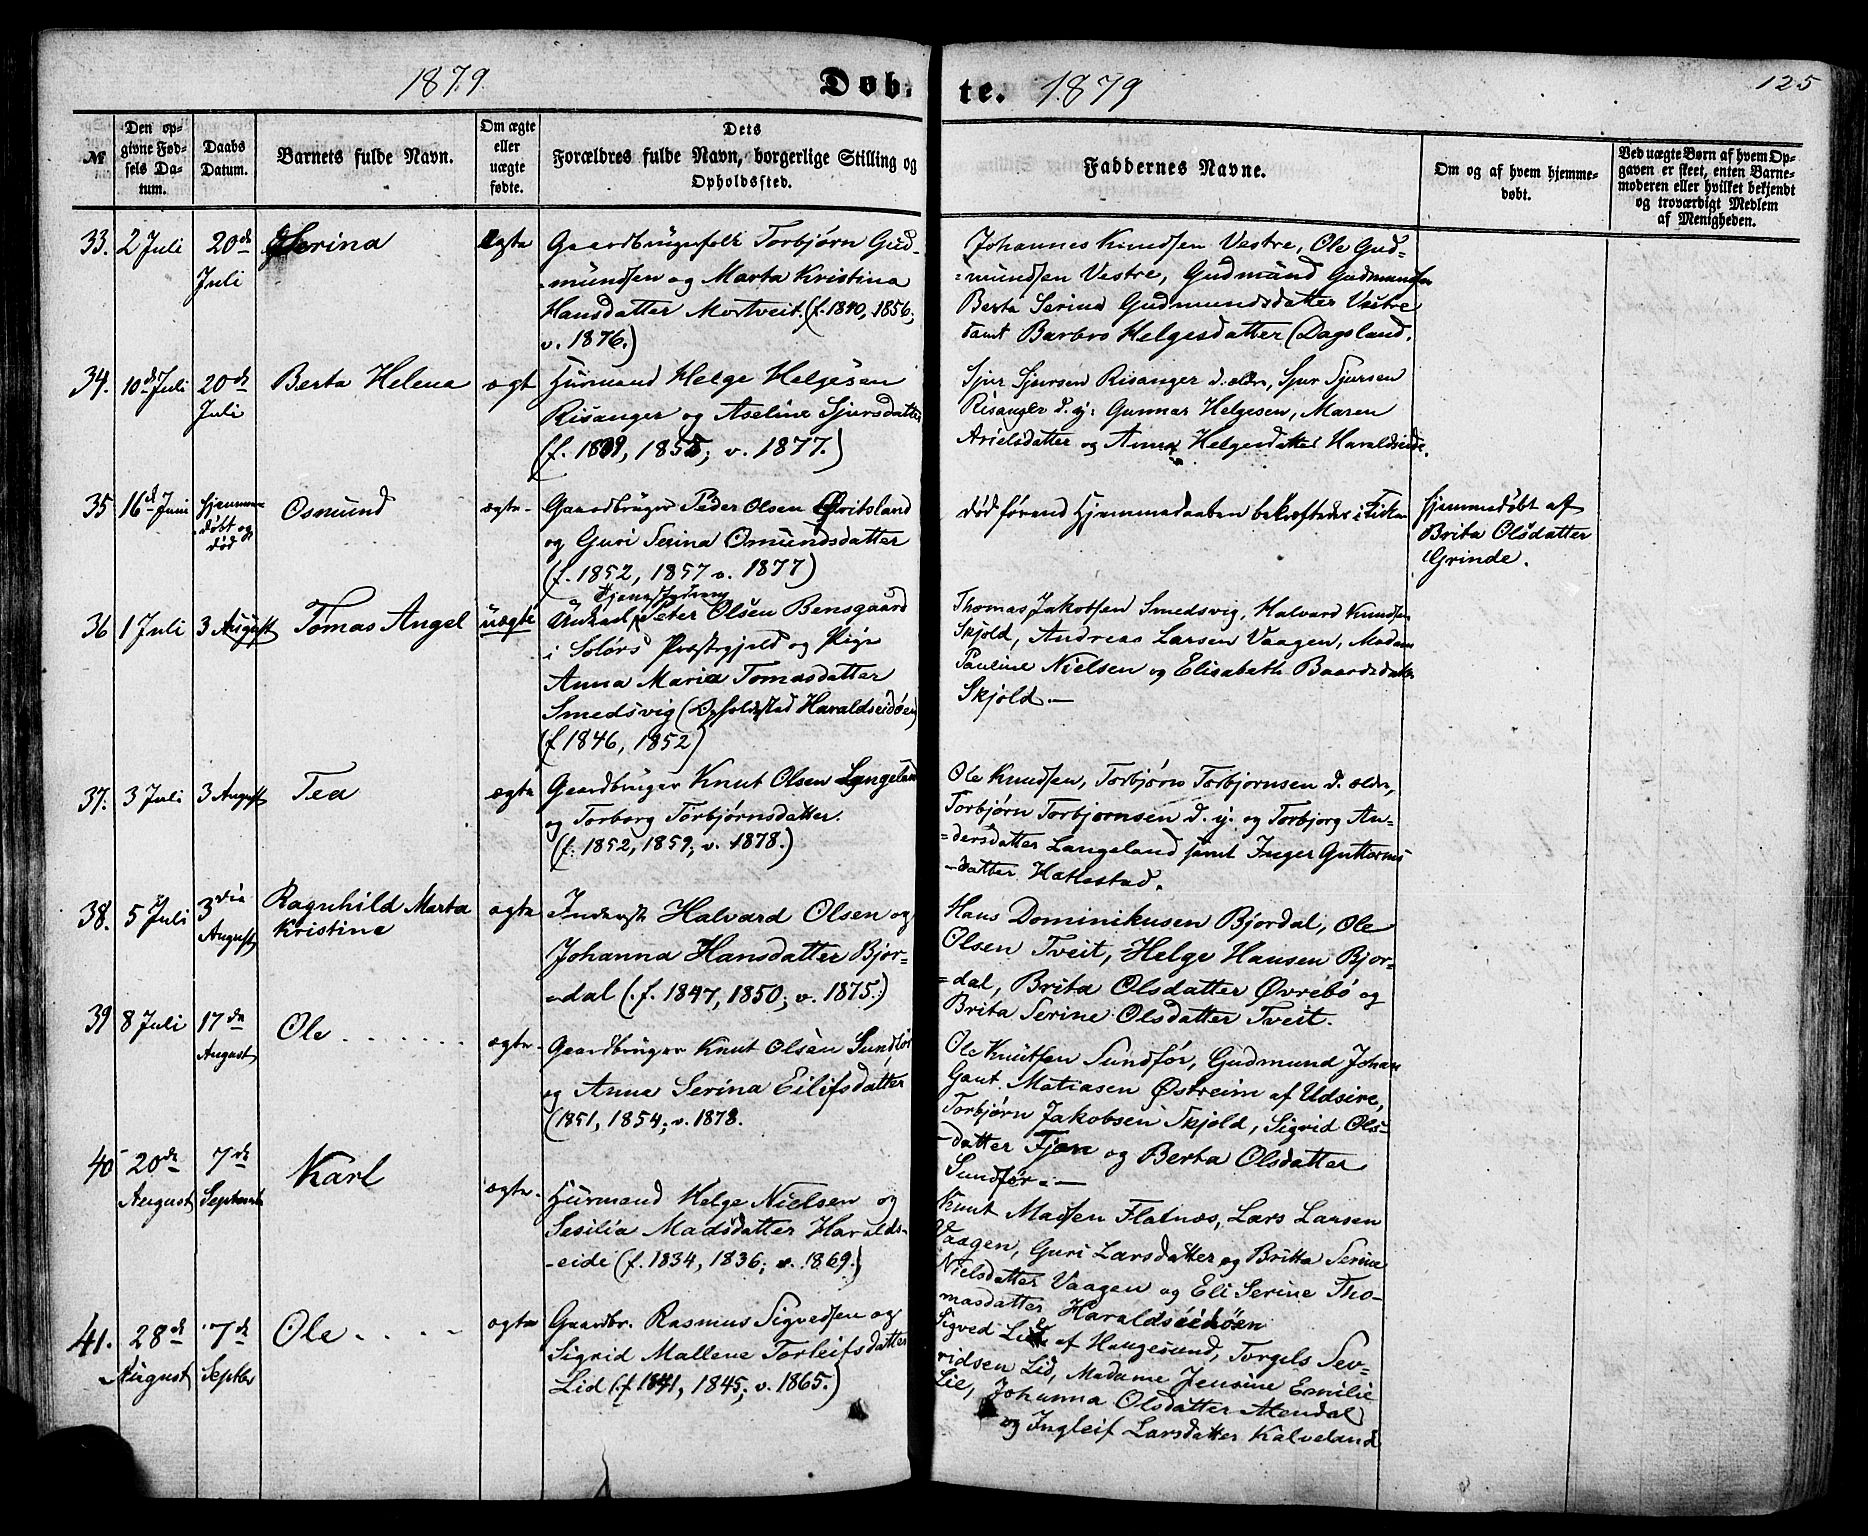 1879 Døb- te. 1879 125
№
Den op-
givne Fød-
sels Da-
tum.
Daabs
Datum.
Barnets fulde Navn.
Om ægte
eller
uægte
fødte.
Dets
Forældres fulde Navn, borgerlige Stilling og
Opholdssted.
Faddernes Navne.
Om og af hvem hjemme-
døbt.
Ved uægte Børn af hvem Op-
gaven er skeet, enten Barne-
moderen eller hvilket bekjendt
og troværdigt Medlem
af Menigheden.
33. 2 Juli
20de
Juli
Serina
Ægte
Gaardbrugerfolk Torbjørn Gud-
-mundsen og Marta Kristina
Hansdatter Mortveit. (f. 1840, 1856;
v. 1876.)
Johannes Knudsen Vestre, Ole Gud-
-mundsen Vestre, Gudmund Gudmundsen
Berta Serina Gudmundsdatter Vestre
samt Barbro Helgesdatter (Dagsland.
34. 10de Juli
20de
Juli
Berta Helena
ægt
Huusmand Helge Helgesen
Risanger og Aseline Sjursdatter
(f. 1839, 1855; v. 1877.)
Sjur Sjursen Risanger d. ældre, Sjur Sjursen
Risanger d. y: Gunnar Helgesen, Maren
Arielsdatter og Anna Helgesdatter Haraldseide.
35 16de Juni
Hjemme-
døbt og
død
Osmund
ægte.
Gaardbruger Peder Olsen Øvitsland
og Guri Serina Omundsdatter
(f. 1852, 1857 v. 1877)
død førend Hjemmedaaben bekræftedes i Kirken
Hjemmedøbt af
Brita Olsdatter
Grinde.
36 1 Juli
3 August
Tomas Angel
uægte
Ungkarl Peter Olsen Bensgaard
i Solørs Præstegjeld og Pige
Anna Maria Tomasdatter
Smedsvig (Opholdssted Haraldseidøen)
(f 1846, 1852)
Thomas Jakobsen Smedsvig, Halvard Knudsen
Skjold, Andreas Larsen Vaagen, Madam
Pauline Nielsen og Elisabeth Baardsdatter
Skjold.
37. 3 Juli
3 August
Tea
ægte
Gaardbruger Knut Olsen Langeland
og Torborg Torbjørnsdatter.
(f. 1852, 1859; v. 1878.)
Ole Knudsen, Torbjørn Torbjørnsen d. ældre,
Torbjørn Torbjørnsen d. y. og Torbjorg An-
-dersdatter Langeland samt Inger Guttorms-
-datter Hattestad.
38. 5 Juli
3die
August
Ragnhild Marta
Kristine
ægte
Inderst Halvard Olsen og
Johanna Hansdatter Bjor-
-dal (f. 1847, 1850; v. 1875.)
Hans Dominikusen Bjordal, Ole
Olsen Tveit, Helge Hansen Bjor-
-dal, Brita Olsdatter Øvrebø og
Brita Serine Olsdatter Tveit.
39 8 Juli
17de
August
Ole
ægte.
Gaardbruger Knut Olsen Sundfør
og Anne Serina Eilifsdatter
(1851, 1854; v. 1878.
Ole Knutsen Sundfør, Gudmund Johan
Gaut Matiasen Østreim af Udsire,
Torbjørn Jakobsen Skjold, Sigrid Ols-
-datter Fjøn og Berta Olsdatter
Sundfør.
40 20de
August
7de
September
Karl
ægte.
Huusmand Helge Nielsen og
Sesilia Madsdatter Haralds-
-eide (f. 1834, 1836; v. 1869.)
Knut Madsen Flatnæs, Lars Larsen
Vaagen, Guri Larsdatter og Britta Serina
Nielsdatter Vaagen og Eli Serine Tho-
masdatter Haraldseidøen
41. 28de
August
7de
Septbr
Ole
ægte
Gaardbr. Rasmus Sigvedsen og
Sigrid Mallene Torleifsdatter
Lid (f. 1841, 1845; v. 1865.)
Sigved Lie af Haugesund, Torgels Sev-
ridsen Lid, Madame Jensine Emilie
Lie, Johanna Olsdatter Alendal
og Ingleif Larsdatter Kalveland